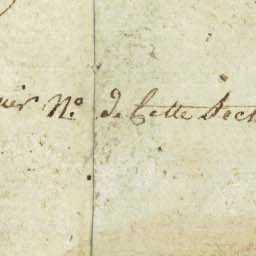 uis N.º de Cette Sect